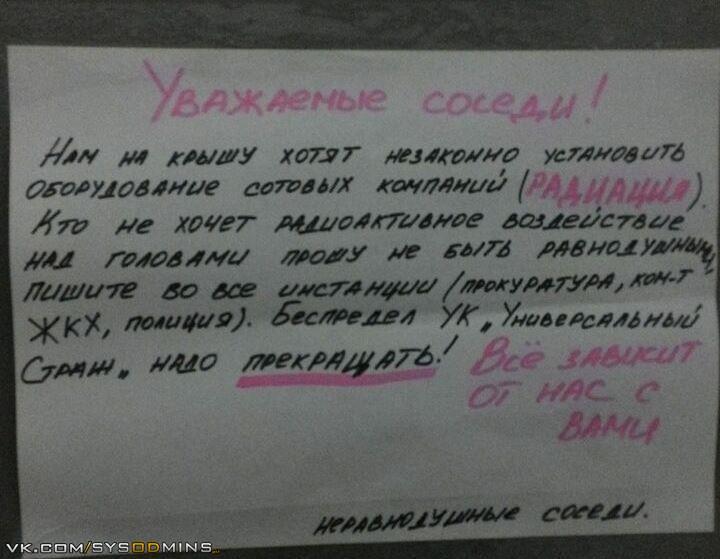 Уважаемые соседи!
Нам на крышу хотят незаконно установить
оборудование сотовых компаний (РАДИАЦИЯ).
Кто не хочет радиоактивное воздействие
над головами прошу не быть равнодушными,
пишите во все инстанции (прокуратура, ком-т
ЖКХ, полиция). Беспредел УК „Универсальный
Страж„ надо прекращать! Всё зависит
от нас с
вами
неравнодушные соседи.
VK.COM/SYSODMINS